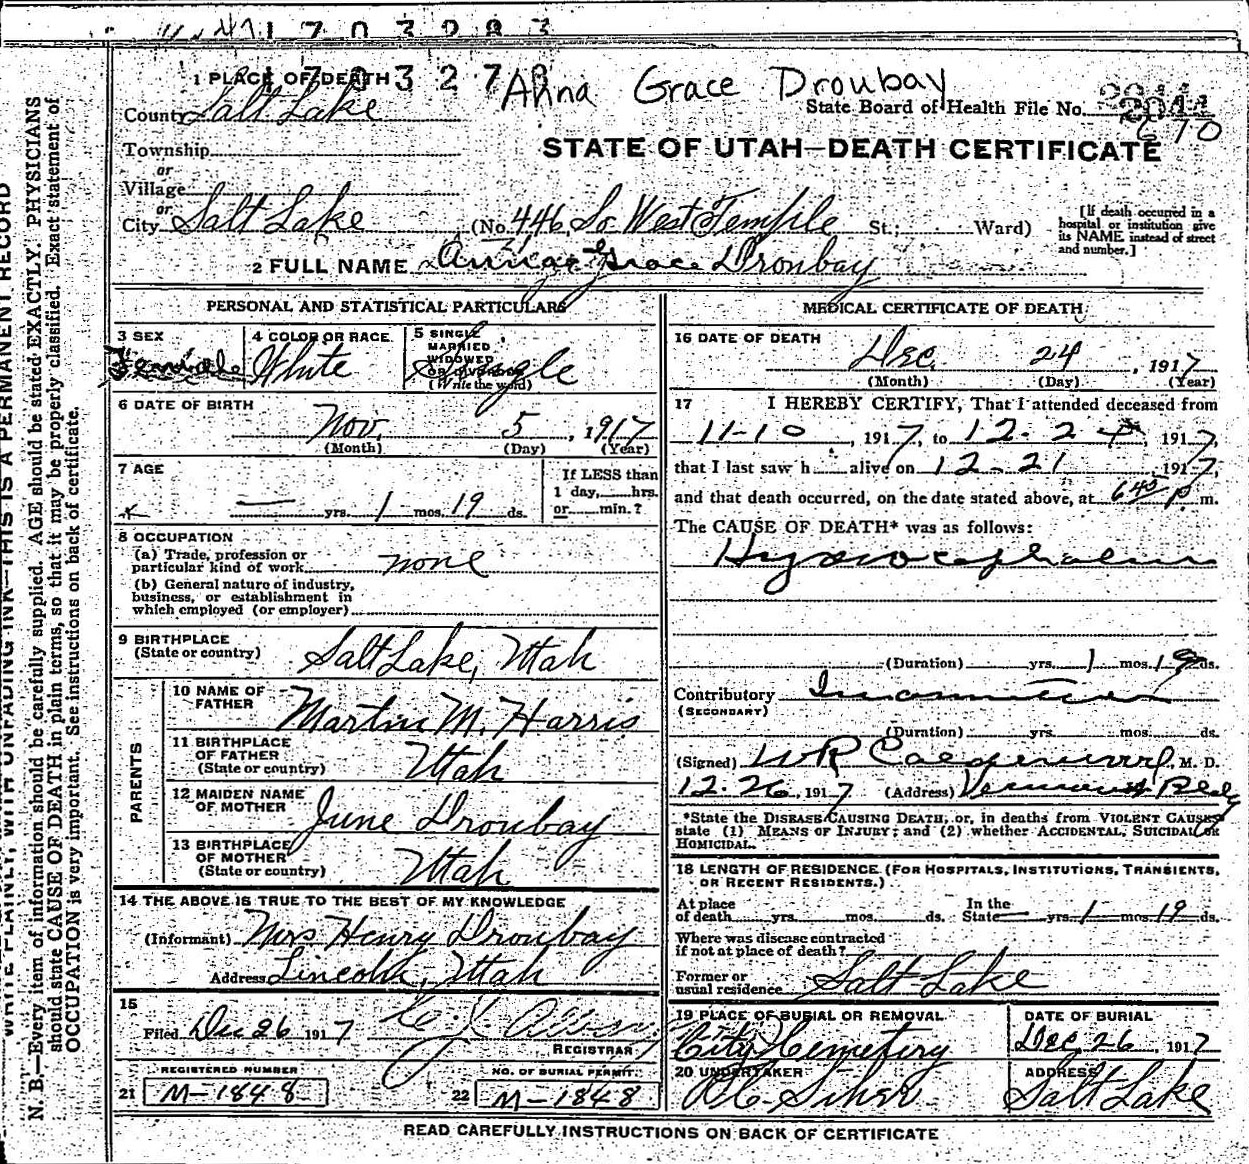 1703283
170327
Anna Grace Droubay
1 PLACE OF DEATH
County Salt Lake
State Board of Health File No.
Township
or
Village
or
STATE OF UTAH—DEATH CERTIFICATE
City Salt Lake (No. 446 So. West Temple St.; Ward)
[If death occurred in a hospital or institution give its NAME instead of street and number.]
2 FULL NAME Anna Grace Droubay
PERSONAL AND STATISTICAL PARTICULARS
3 SEX
Female
4 COLOR OR RACE
White
5 SINGLE
MARRIED
WIDOWED
OR DIVORCED
(Write the word)
Single
6 DATE OF BIRTH
Nov. 5, 1917
(Month) (Day) (Year)
7 AGE
— yrs. 1 mos. 19 ds.
If LESS than
1 day, hrs.
or min.?
8 OCCUPATION
(a) Trade, profession or
particular kind of work none
(b) General nature of industry,
business, or establishment in
which employed (or employer)
9 BIRTHPLACE
(State or country)
Salt Lake, Utah
PARENTS
10 NAME OF
FATHER
Martin M. Harris
11 BIRTHPLACE
OF FATHER
(State or country)
Utah
12 MAIDEN NAME
OF MOTHER
June Droubay
13 BIRTHPLACE
OF MOTHER
(State or country)
Utah
14 THE ABOVE IS TRUE TO THE BEST OF MY KNOWLEDGE
(Informant) Mrs Henry Droubay
Address Lincoln, Utah
15
Filed Dec 26 1917
REGISTRAR
REGISTERED NUMBER
21 M-1848
NO. OF BURIAL PERMIT
22 M-1848
MEDICAL CERTIFICATE OF DEATH
16 DATE OF DEATH
Dec. 24, 1917
(Month) (Day) (Year)
17 I HEREBY CERTIFY, That I attended deceased from
11-10, 1917, to 12-24, 1917,
that I last saw h alive on 12-21, 1917,
and that death occurred, on the date stated above, at 6 45 p m.
The CAUSE OF DEATH* was as follows:
Hydrocephalus
(Duration) yrs. 1 mos. 19 ds.
Contributory Inanition
(SECONDARY)
(Duration) yrs. mos. ds.
(Signed) W R Calderwood, M. D.
12-26, 1917 (Address) Vermont Bldg
*State the DISEASE CAUSING DEATH, or, in deaths from VIOLENT CAUSES
state (1) MEANS OF INJURY; and (2) whether ACCIDENTAL, SUICIDAL or
HOMICIDAL.
18 LENGTH OF RESIDENCE (FOR HOSPITALS, INSTITUTIONS, TRANSIENTS,
OR RECENT RESIDENTS.)
At place
of death yrs. mos. ds.
In the
State — yrs. 1 mos. 19 ds.
Where was disease contracted
if not at place of death?
Former or
usual residence Salt Lake
19 PLACE OF BURIAL OR REMOVAL
City Cemetery
DATE OF BURIAL
Dec. 26, 1917
20 UNDERTAKER
ADDRESS
Salt Lake
READ CAREFULLY INSTRUCTIONS ON BACK OF CERTIFICATE
WRITE PLAINLY, WITH UNFADING INK—THIS IS A PERMANENT RECORD
N. B.—Every item of information should be carefully supplied. AGE should be stated EXACTLY. PHYSICIANS
should state CAUSE OF DEATH in plain terms, so that it may be properly classified. Exact statement of
OCCUPATION is very important. See instructions on back of certificate.